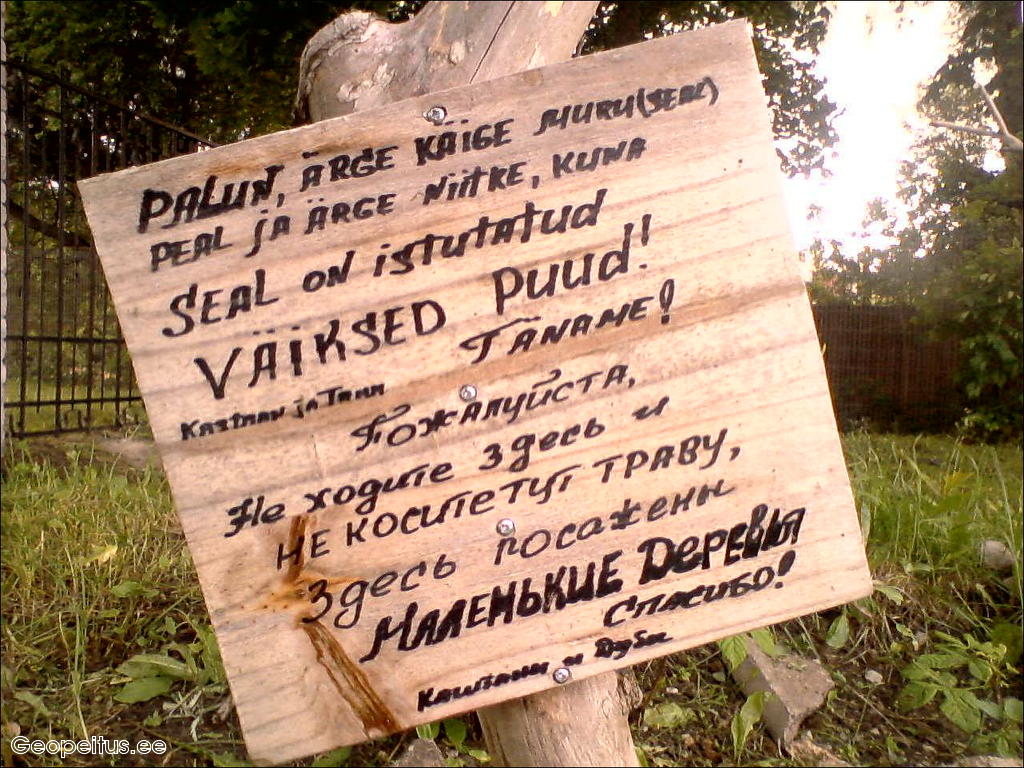 PALUN, ÄRGE KÄIGE MURU(SEAL)
PEAL JA ÄRGE NIITKE, KUNA
SEAL ON istutatud
VÄIKSED PUUD!
TÄNAME!
KASTAN JA TAMM
Пожалуйста,
Не ходите здесь и
НЕ КОСИТЕ ТУТ ТРАВУ,
Здесь посажены
МАЛЕНЬКИЕ ДЕРЕВЬЯ
СПАСИБО!
Каштаны и Дубы
Geopeitus.ee